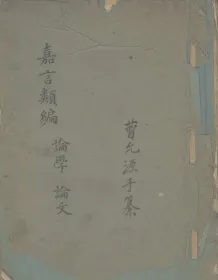 嘉言類編
論學 論文
曹允源手纂